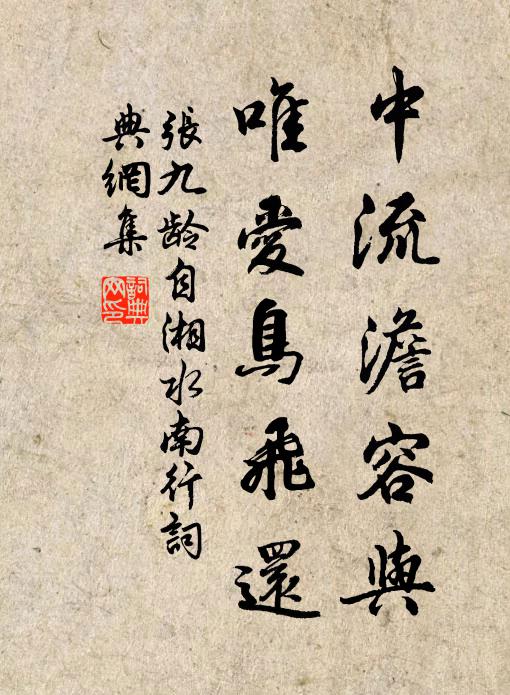 中流澹容與
唯愛鳥飛還
張九龄自湘水南行詞
典網集
詞典網印